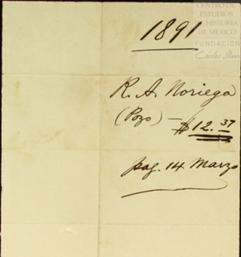 CENTRO DE
ESTUDIOS
DE HISTORIA
DE MEXICO
FUNDACIÓN
Carlos Slim
1891
R. A. Noriega
(Pozo) — $12.37
pag. 14 Marzo